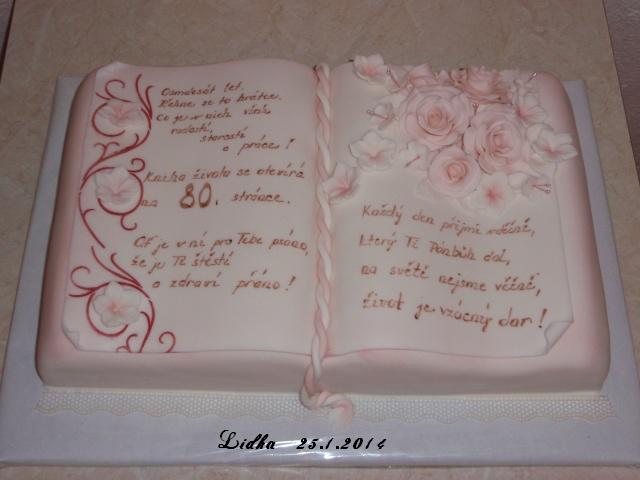 Osmdesát let.
Řekne se to krátce.
Co je v nich všech
radostí,
starostí
a práce!
Kniha života se otevírá
na 80. stránce.
Ať je v ní pro Tebe psáno,
že je Ti štěstí
a zdraví přáno!
Každý den přijmi vděčně,
který Ti Pánbůh dal,
na světě nejsme věčně,
život je vzácný dar!
Lidka 25.1.2014